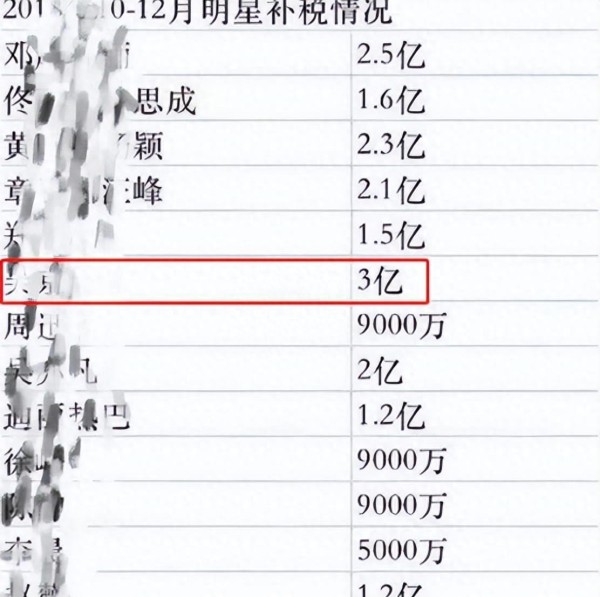 201 10-12月明星补税情况
邓 2.5亿
佟 思成 1.6亿
黄 颖 2.3亿
章 汪峰 2.1亿
郑 1.5亿
吴京 3亿
周迅 9000万
吴 凡 2亿
迪丽热巴 1.2亿
徐峥 9000万
陈 9000万
李晨 5000万
赵 1.2亿